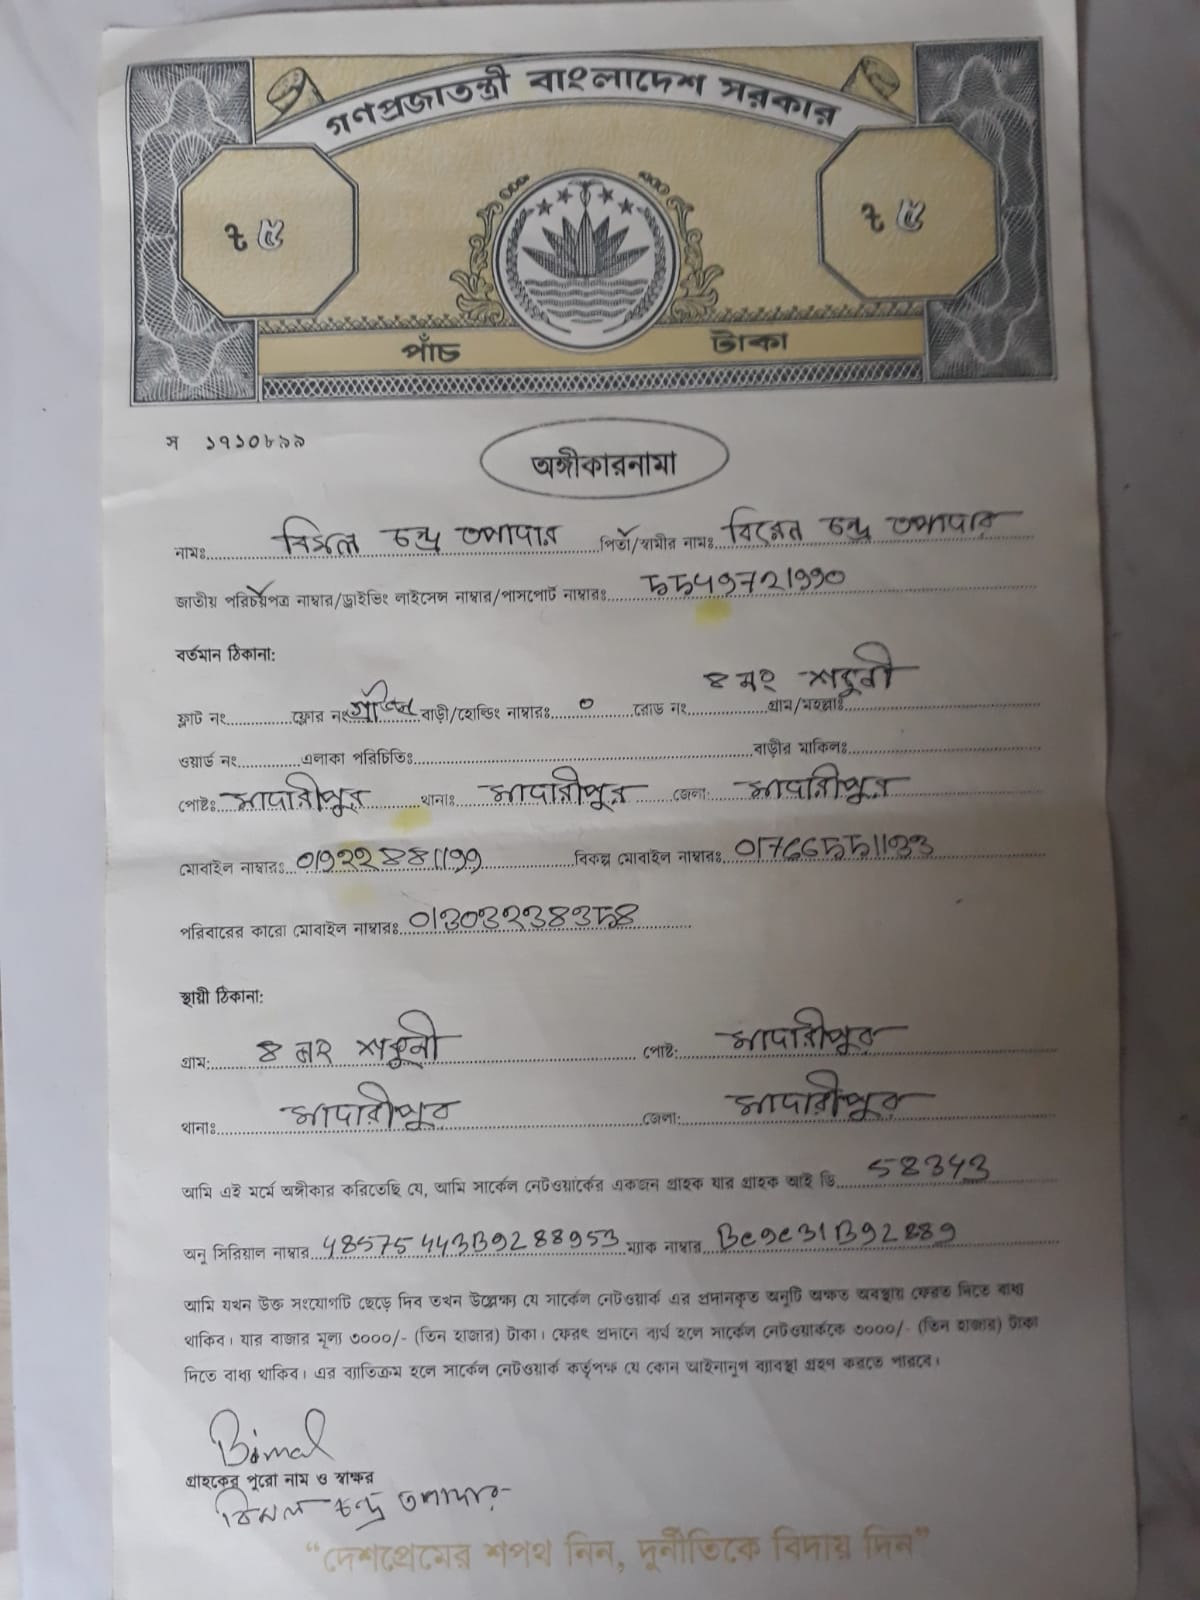 গণপ্রজাতন্ত্রী বাংলাদেশ সরকার
৳ ৫ ৳ ৫
পাঁচ টাকা
স ১৭১০৮৯৯
অঙ্গীকারনামা
নামঃ বিমল চন্দ্র তপাদার পিতা/স্বামীর নামঃ বিরেন চন্দ্র তপাদার
জাতীয় পরিচয়পত্র নাম্বার/ড্রাইভিং লাইসেন্স নাম্বার/পাসপোর্ট নাম্বারঃ 5549721990
বর্তমান ঠিকানা:
ফ্লাট নং ফ্লোর নং বাড়ী/হোল্ডিং নাম্বারঃ ০ রোড নং গ্রাম/মহল্লাঃ ৪ নং শকুনী
ওয়ার্ড নং এলাকা পরিচিতিঃ বাড়ীর মাকিলঃ
পোষ্টঃ মাদারীপুর থানাঃ মাদারীপুর জেলা: মাদারীপুর
মোবাইল নাম্বারঃ 01922881199 বিকল্প মোবাইল নাম্বারঃ 01766551133
পরিবারের কারো মোবাইল নাম্বারঃ
স্থায়ী ঠিকানা:
গ্রাম: ৪ নং শকুনী পোষ্ট: মাদারীপুর
থানাঃ মাদারীপুর জেলা: মাদারীপুর
আমি এই মর্মে অঙ্গীকার করিতেছি যে, আমি সার্কেল নেটওয়ার্কের একজন গ্রাহক যার গ্রাহক আই ডি 58343
অনু সিরিয়াল নাম্বার 48575443B9288953 ম্যাক নাম্বার Bc9e31B92889
আমি যখন উক্ত সংযোগটি ছেড়ে দিব তখন উল্লেক্ষ্য যে সার্কেল নেটওয়ার্ক এর প্রদানকৃত অনুটি অক্ষত অবস্থায় ফেরত দিতে বাধ্য
থাকিব। যার বাজার মূল্য ৩০০০/- (তিন হাজার) টাকা। ফেরৎ প্রদানে ব্যর্থ হলে সার্কেল নেটওয়ার্ককে ৩০০০/- (তিন হাজার) টাকা
দিতে বাধ্য থাকিব। এর ব্যাতিক্রম হলে সার্কেল নেটওয়ার্ক কর্তৃপক্ষ যে কোন আইনানুগ ব্যাবস্থা গ্রহণ করতে পারবে।
Bimal
গ্রাহকের পুরো নাম ও স্বাক্ষর
বিমল চন্দ্র তপাদার
“দেশপ্রেমের শপথ নিন, দুর্নীতিকে বিদায় দিন”